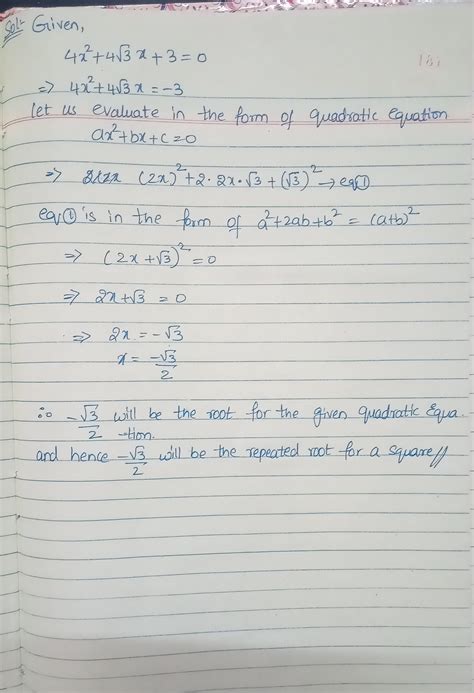 Sol:- Given,
4x²+4√3 x+3=0
=> 4x²+4√3 x=-3
let us evaluate in the form of quadratic equation
ax²+bx+c=0
=> (2x)²+2·2x·√3+(√3)² → eq①
eq① is in the form of a²+2ab+b² = (a+b)²
=> (2x+√3)²=0
=> 2x+√3 = 0
=> 2x = -√3
x = -√3/2
∴ -√3/2 will be the root for the given quadratic Equa
-tion.
and hence -√3/2 will be the repeated root for a square//